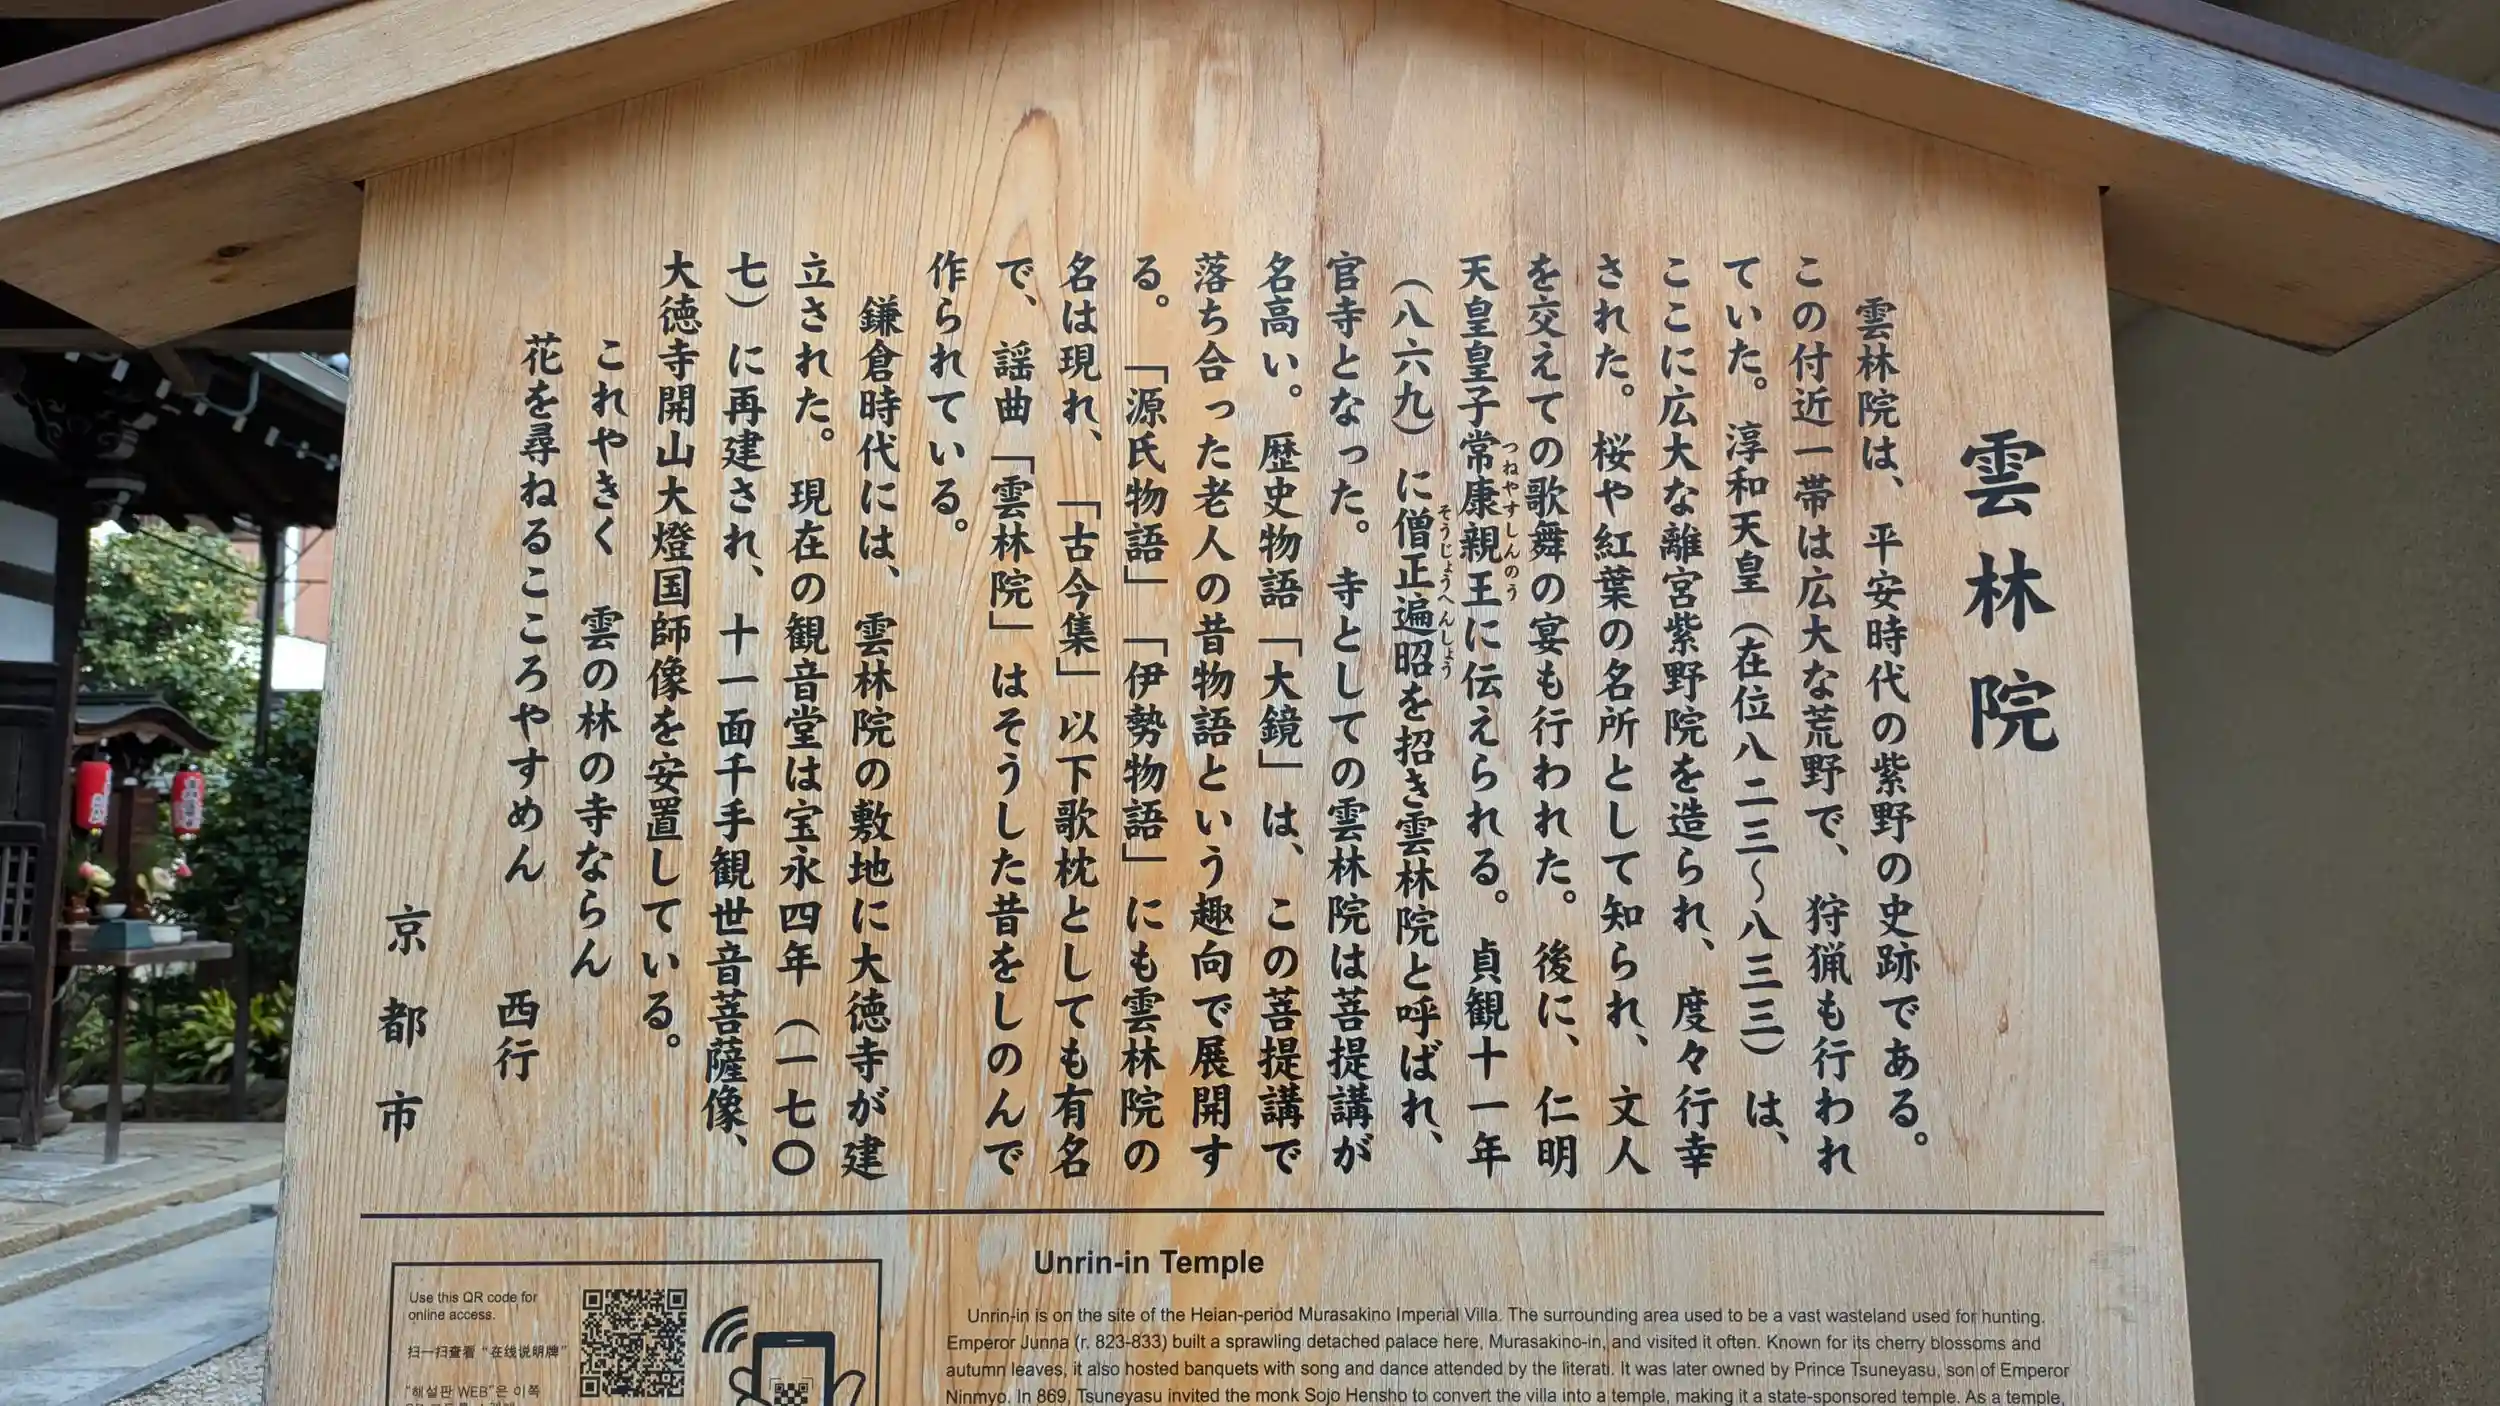 雲林院
雲林院は、平安時代の紫野の史跡である。
この付近一帯は広大な荒野で、狩猟も行われ
ていた。淳和天皇（在位八二三〜八三三）は、
ここに広大な離宮紫野院を造られ、度々行幸
された。桜や紅葉の名所として知られ、文人
を交えての歌舞の宴も行われた。後に、仁明
天皇皇子常康親王に伝えられる。貞観十一年
つねやすしんのう
（八六九）に僧正遍昭を招き雲林院と呼ばれ、
そうじょうへんしょう
官寺となった。寺としての雲林院は菩提講が
名高い。歴史物語「大鏡」は、この菩提講で
落ち合った老人の昔物語という趣向で展開す
る。「源氏物語」「伊勢物語」にも雲林院の
名は現れ、「古今集」以下歌枕としても有名
で、謡曲「雲林院」はそうした昔をしのんで
作られている。
鎌倉時代には、雲林院の敷地に大徳寺が建
立された。現在の観音堂は宝永四年（一七〇
七）に再建され、十一面千手観世音菩薩像、
大徳寺開山大燈国師像を安置している。
これやきく　雲の林の寺ならん
花を尋ねるこころやすめん
西行
京都市
Unrin-in Temple
Unrin-in is on the site of the Heian-period Murasakino Imperial Villa. The surrounding area used to be a vast wasteland used for hunting.
Emperor Junna (r. 823-833) built a sprawling detached palace here, Murasakino-in, and visited it often. Known for its cherry blossoms and
autumn leaves, it also hosted banquets with song and dance attended by the literati. It was later owned by Prince Tsuneyasu, son of Emperor
Ninmyo. In 869, Tsuneyasu invited the monk Sojo Hensho to convert the villa into a temple, making it a state-sponsored temple. As a temple,
Use this QR code for
online access.
扫一扫查看“在线说明牌”
"해설판 WEB"은 이쪽